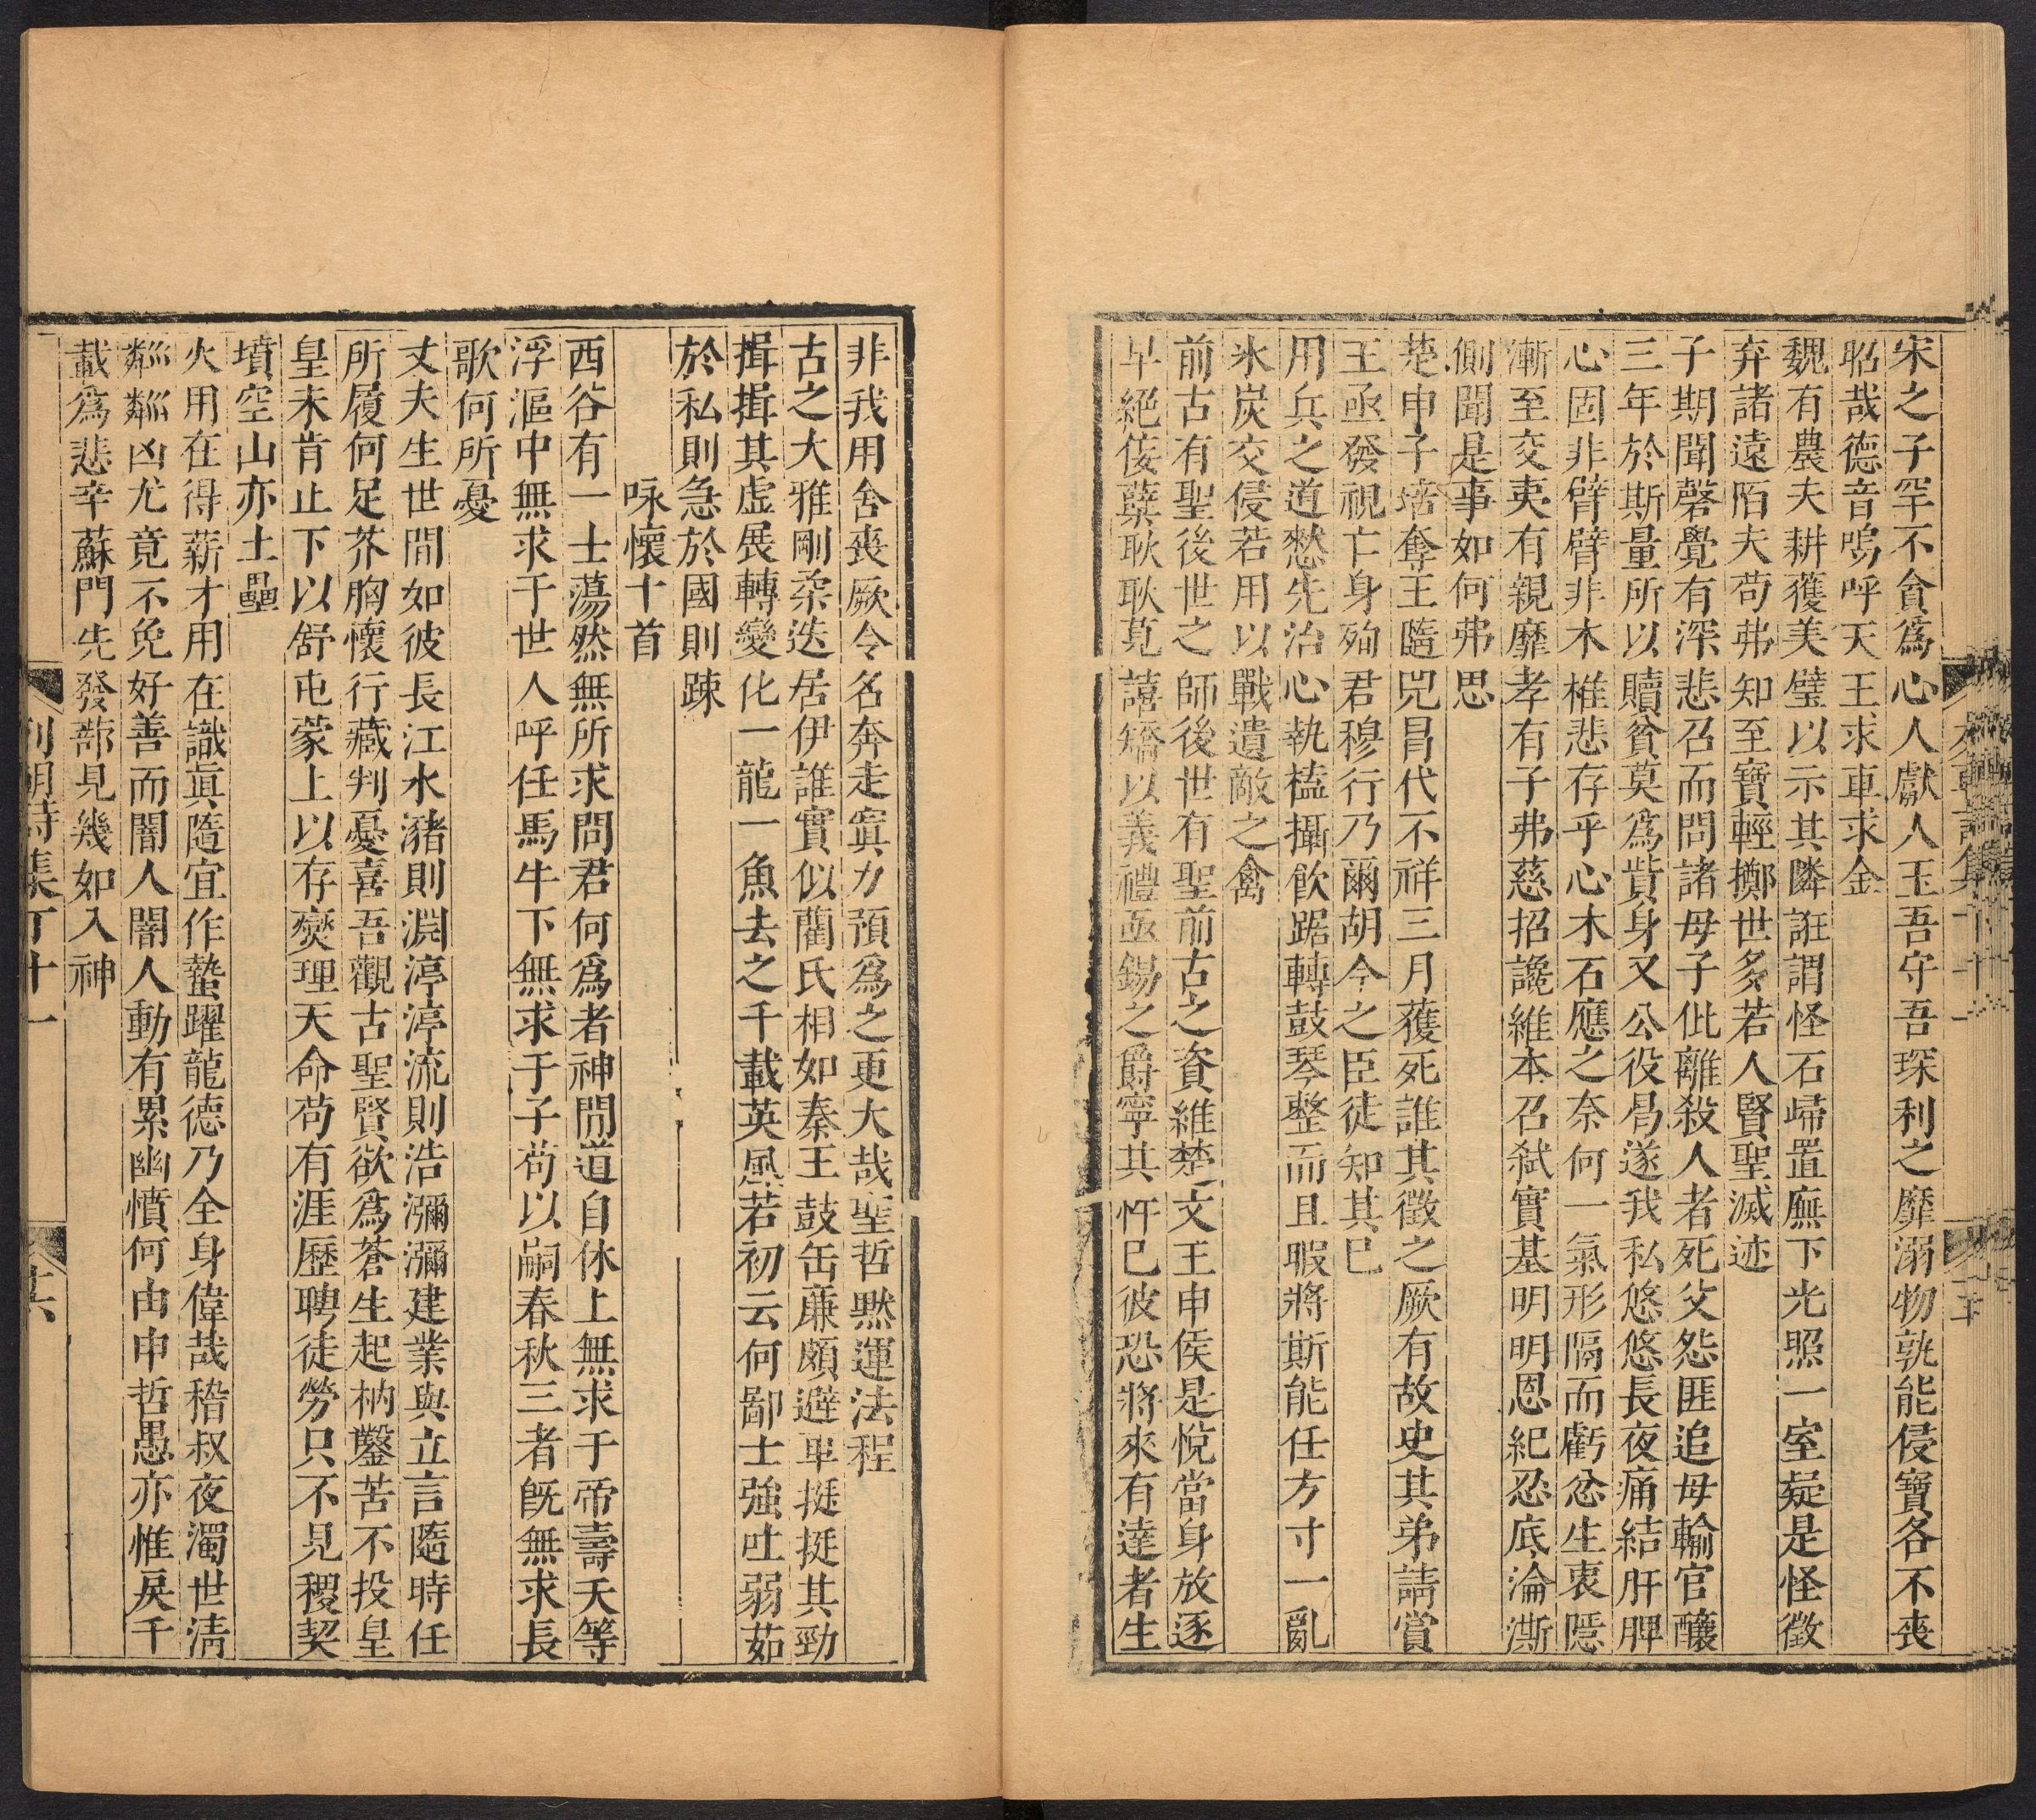 宋之子罕不貪爲心人獻人玉吾守吾琛利之靡溺物孰能侵寶各不喪
昭哉德音嗚呼天王求車求金
魏有農夫耕獲美璧以示其隣誑謂怪石歸置廡下光照一室疑是怪徵
弃諸遠陌夫苟弗知至寶輕擲世多若人賢聖滅迹
子期聞磬覺有深悲召而問諸母子仳離殺人者死父怨匪追母輸官釀
三年於斯量所以贖貧莫爲貲身又公役曷遂我私悠悠長夜痛結肝脾
心固非臂臂非木椎悲存乎心木石應之奈何一氣形隔而虧忿生衷隱
漸至交夷有親靡孝有子弗慈招讒維本召弑實基明明恩紀忍底淪澌
側聞是事如何弗思
楚申子培奪王隨兕冐代不祥三月獲死誰其徵之厥有故史其弟請賞
王亟發視亡身殉君穆行乃爾胡今之臣徒知其已
用兵之道愁先治心執榼攝飲踞轉鼓琴整而且暇將斯能任方寸一亂
氷炭交侵若用以戰遺敵之禽
前古有聖後世之師後世有聖前古之資維楚文王申侯是悅當身放逐
早絕佞孽耿耿莧譆矯以義禮亟錫之爵寧其忤已彼恐將來有達者生
非我用舍喪厥令名奔走寘力預爲之更大哉聖哲黙運法程
古之大雅剛柔迭居伊誰實似藺氏相如秦王鼓缶廉頗避車挺挺其勁
揖揖其虛展轉變化一龍一魚去之千載英風若初云何鄙士強吐弱茹
於私則急於國則踈
咏懷十首
西谷有一士蕩然無所求問君何爲者神閒道自休上無求于帝壽夭等
浮漚中無求于世人呼任馬牛下無求于子苟以嗣春秋三者旣無求長
歌何所憂
丈夫生世間如彼長江水瀦則淵渟渟流則浩瀰瀰建業與立言隨時任
所履何足芥胸懷行藏判憂喜吾觀古聖賢欲爲蒼生起枘鑿苦不投皇
皇未肯止下以舒屯蒙上以存爕理天命苟有涯歷聘徒勞只不見稷契
墳空山亦土壘
火用在得薪才用在識眞隨宜作蟄躍龍德乃全身偉哉嵇叔夜濁世淸
粼粼凶尤竟不免好善而闇人闇人動有累幽憤何由申哲愚亦惟戾千
載爲悲辛蘇門先發蔀見幾如入神
列朝詩集丁十一